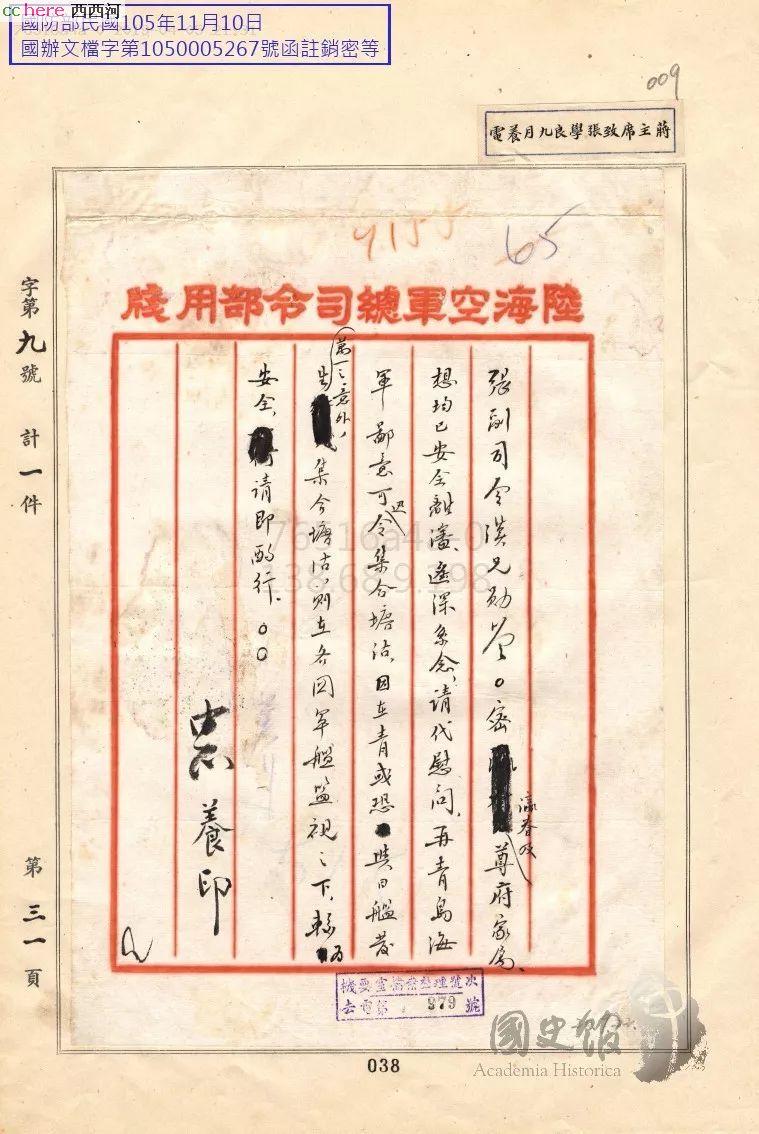 cchere 西西河
國防部民國105年11月10日
國辦文檔字第1050005267號函註銷密等
009
蔣主席致張學良九月養電
4155
65
陸海空軍總司令部用牋
張副司令漢兄勛鑒。密
瀛眷及
尊府家屬、
想均已安全離瀋、遙深系念、請代慰問、再青島海
軍鄙意可迅令集合塘沽、因在青或恐與日艦發
生萬一之意外、集合塘沽、則在各國軍艦監視之下、較為
安全、請即酌行、。。
中正養印
字第九號 計一件
第三一頁
機要室檔案整理號次
去電第 979 號
038
國史館
Academia Historica